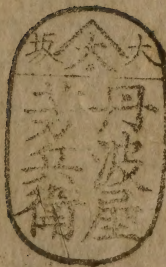 大坂
丹波屋
兵衛